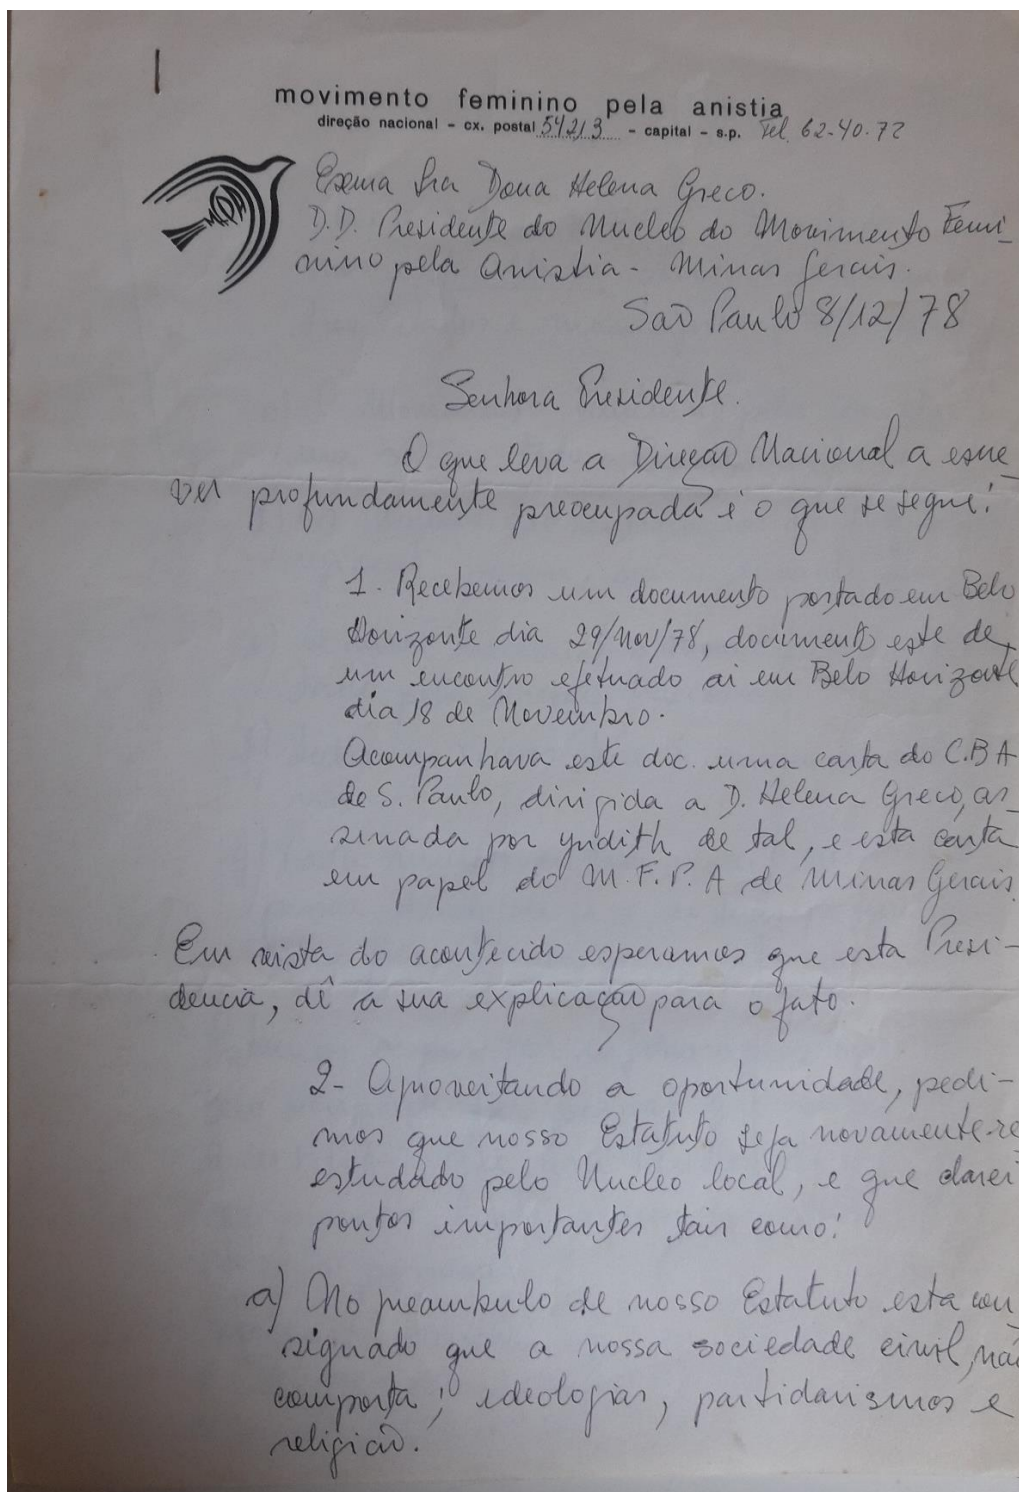 movimento feminino pela anistia
direção nacional - cx. postal 54213 - capital - s.p. Tel. 62-40.72
Exma Sra Dona Helena Greco.
D.D. Presidente do Nucleo do Movimento Femi-
nino pela Anistia - Minas Gerais.
São Paulo 8/12/78
Senhora Presidente.
O que leva a Direção Nacional a escre-
ver profundamente preocupada é o que se segue:
1. Recebemos um documento postado em Belo
Horizonte dia 29/Nov/78, documento este de
um encontro efetuado ai em Belo Horizonte
dia 18 de Novembro.
Acompanhava este doc. uma carta do C.B A
de S. Paulo, dirigida a D. Helena Greco, as-
sinada por Yudith de tal, e esta carta
em papel do M.F.P.A de Minas Gerais.
Em vista do acontecido esperamos que esta Presi-
dencia, dê a sua explicação para o fato.
2- Aproveitando a oportunidade, pedi-
mos que nosso Estatuto seja novamente re
estudado pelo Nucleo local, e que
pontos importantes tais como:
a) No preambulo de nosso Estatuto esta con-
signado que a nossa sociedade civil, não
comporta; ideologias, partidarismos e
religião.